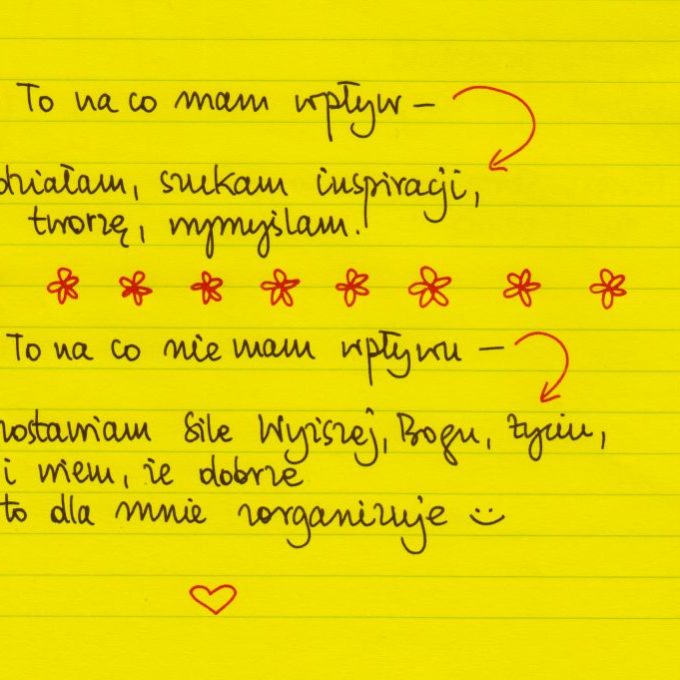 To na co mam wpływ –
działam, szukam inspiracji,
tworzę, wymyślam!
To na co nie mam wpływu –
zostawiam Sile Wyższej, Bogu, Życiu,
i wiem, że dobrze
to dla mnie zorganizuje :)